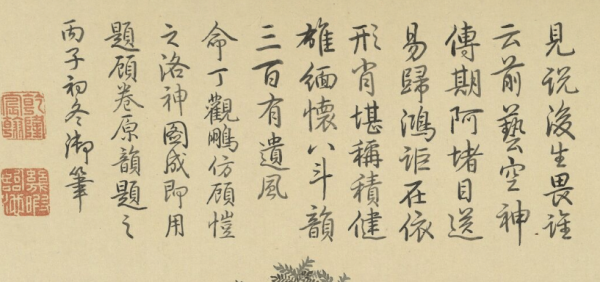 見說後生畏誰
云前藝空神
傳期阿堵目送
易歸鴻詎在依
形肖堪稱積健
雄緬懷八斗韻
三百有遺風
命丁觀鵬仿顧愷
之洛神圖成即用
題顧卷原韻題之
丙子初冬御筆
乾隆
宸翰
幾暇
臨池